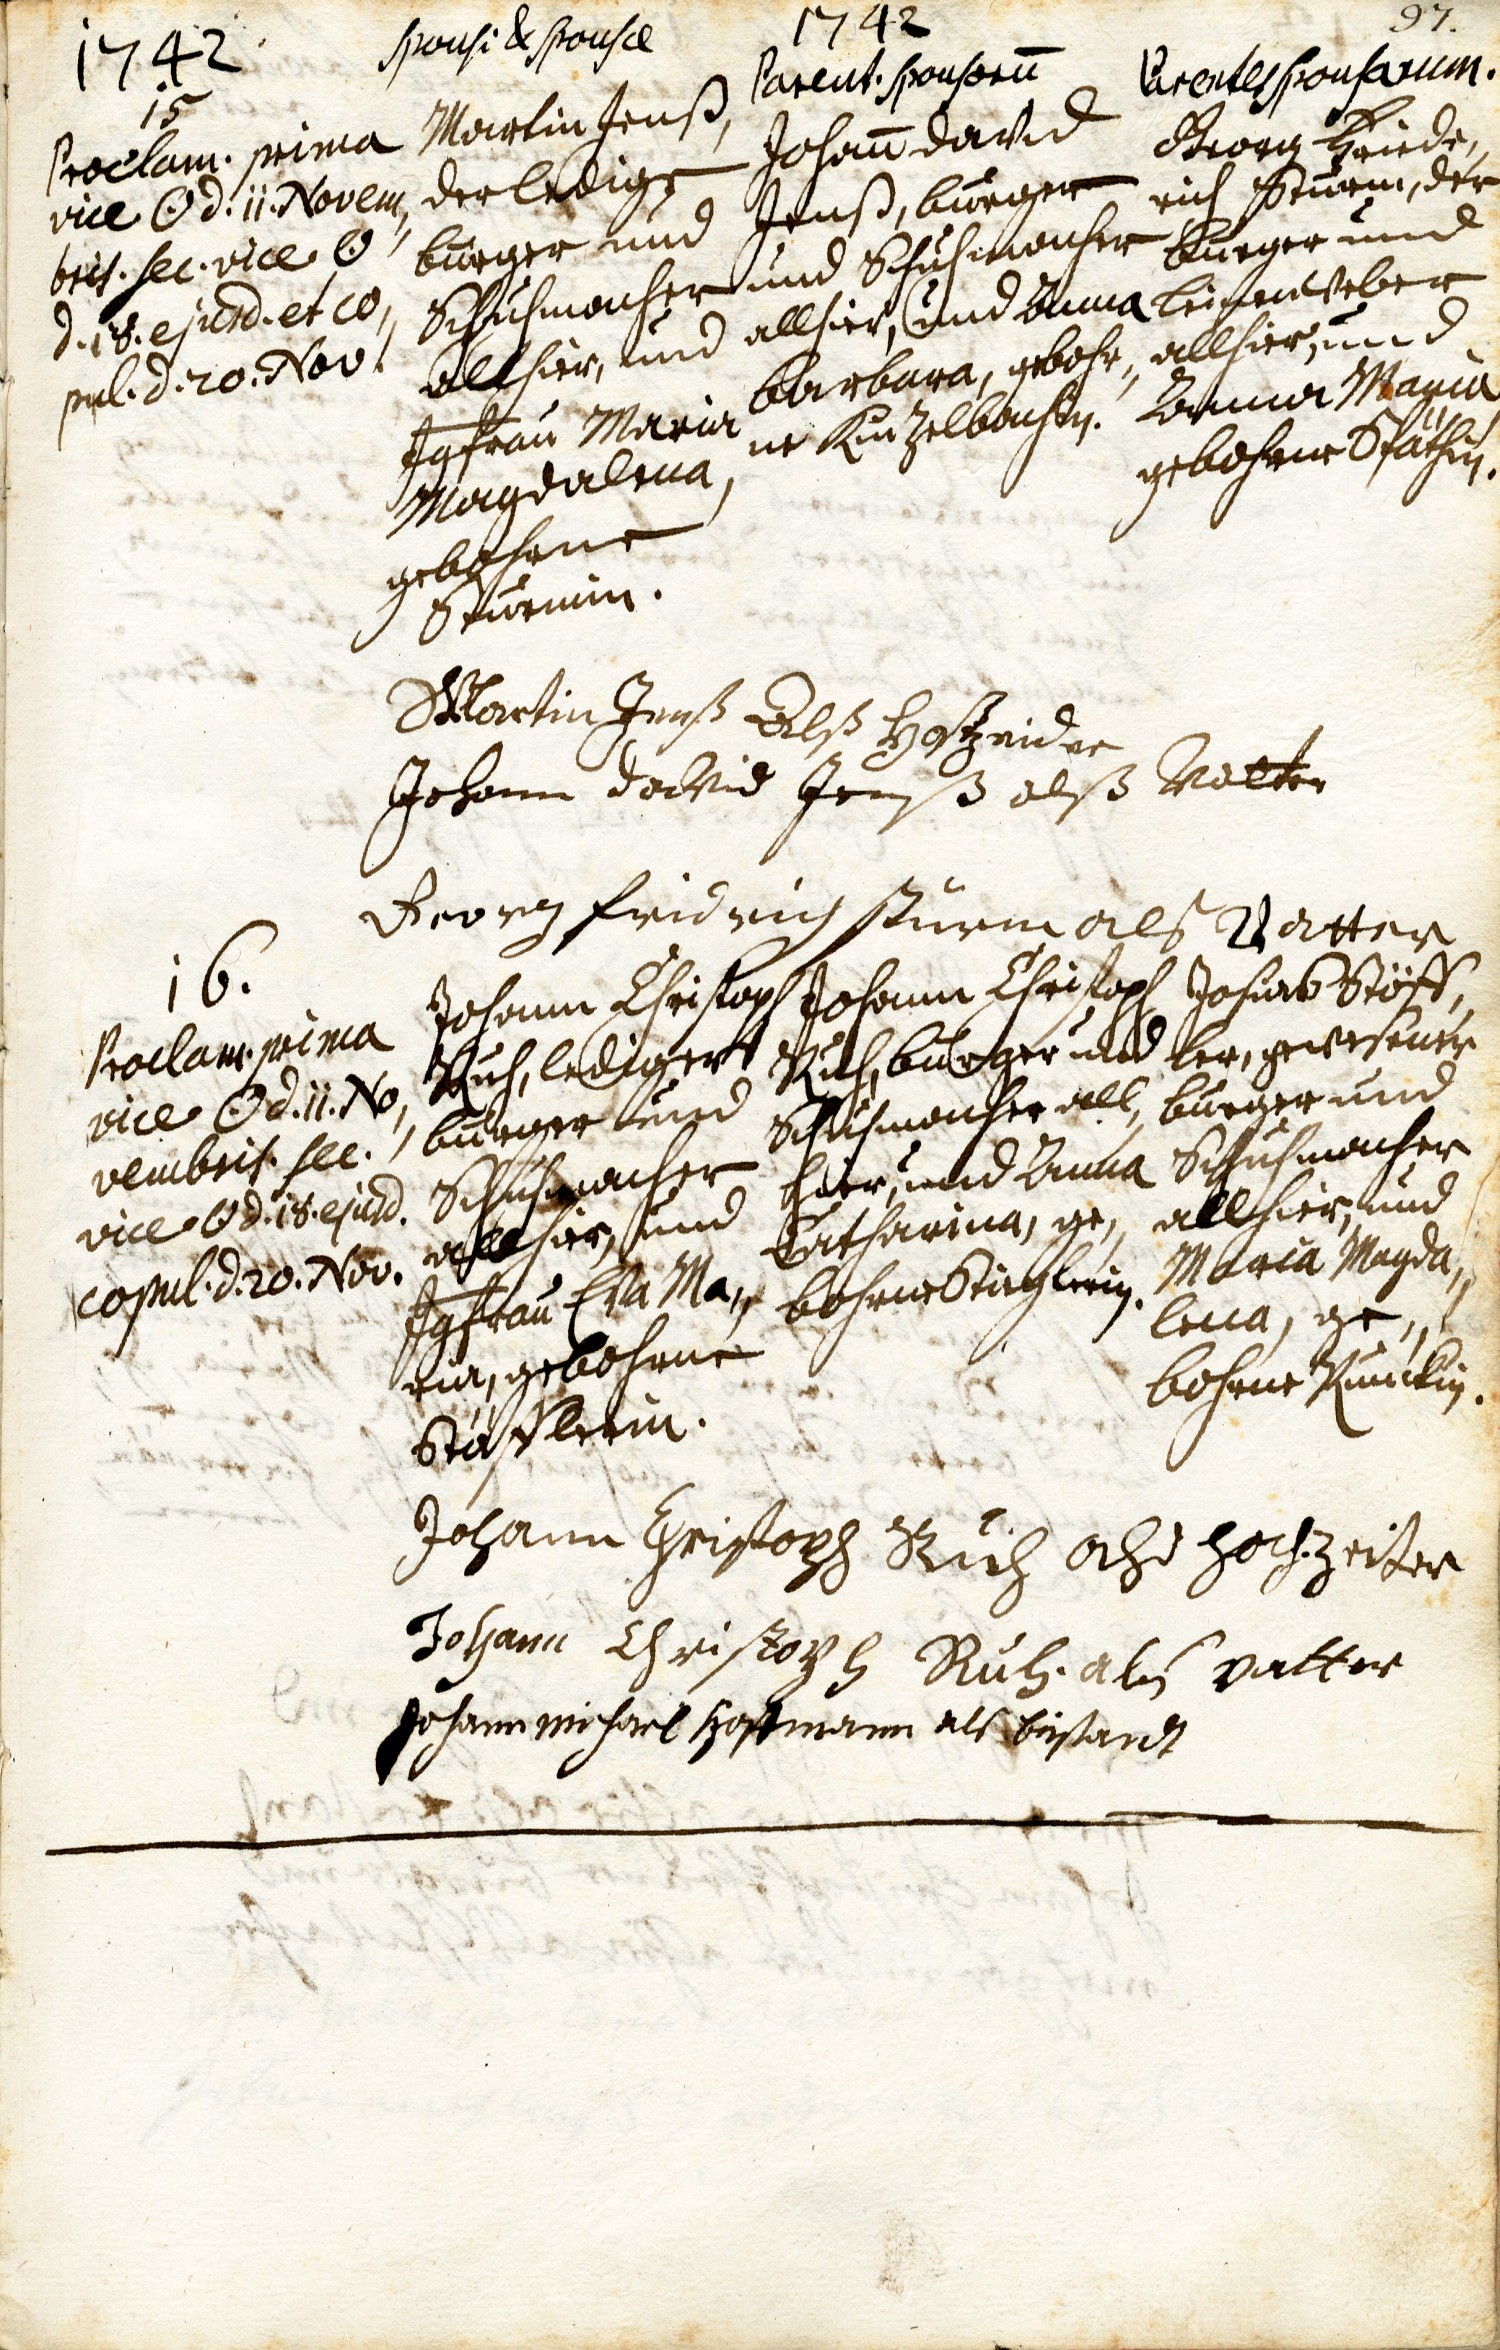 97.
1742
sponsi & sponsæ
1742
Parent. sponsorū
Parentes sponsarum.
15
Proclam. prima
vice ☉ d. 11. Novem„
bris. sec. vice ☉
d. 18. ejusd. et co„
pul. d. 20. Nov.
Martin Jenß,
der ledige
burger und
Schuhmacher
allhier, und
Jgfrau Maria
Magdalena,
gebohrne
Sturmin.
Johañ david
Jenß, burger
und Schuhmacher
allhier, und Anna
barbara, gebohr„
ne Kinzelbachin.
Georg Friede„
rich Sturm, der
burger und
leinenweber
allhier, und
Anna Maria
gebohrne Späthin.
Martin Jenß Alß Hoßzeider
Johann david Jenß alß Vatter
Georg fridrich sturm als Vatter
16.
Proclam. prima
vice ☉ d. 11. No„
vembris. sec.
vice ☉ d. 18. ejusd.
copul. d. 20. Nov.
Johann Christoph
Ruh, lediger
burger und
Schuhmacher
allhier, und
Jgfrau Eva Ma„
ria, gebohrne
Stößlerin.
Johann Christoph
Ruh, burger und
Schuhmacher all„
hier, und Anna
Catharina, ge„
bohrne Stieglerin.
Josias Stöß„
ler, gewesener
burger und
Schuhmacher
allhier, und
Maria Magda„
lena, ge„
bohrne Kunckin.
Johann Christoph Ruh alß hochzeiter
Johann Christoph Ruh. als vatter
Johann michael Hoffmann als bistandt